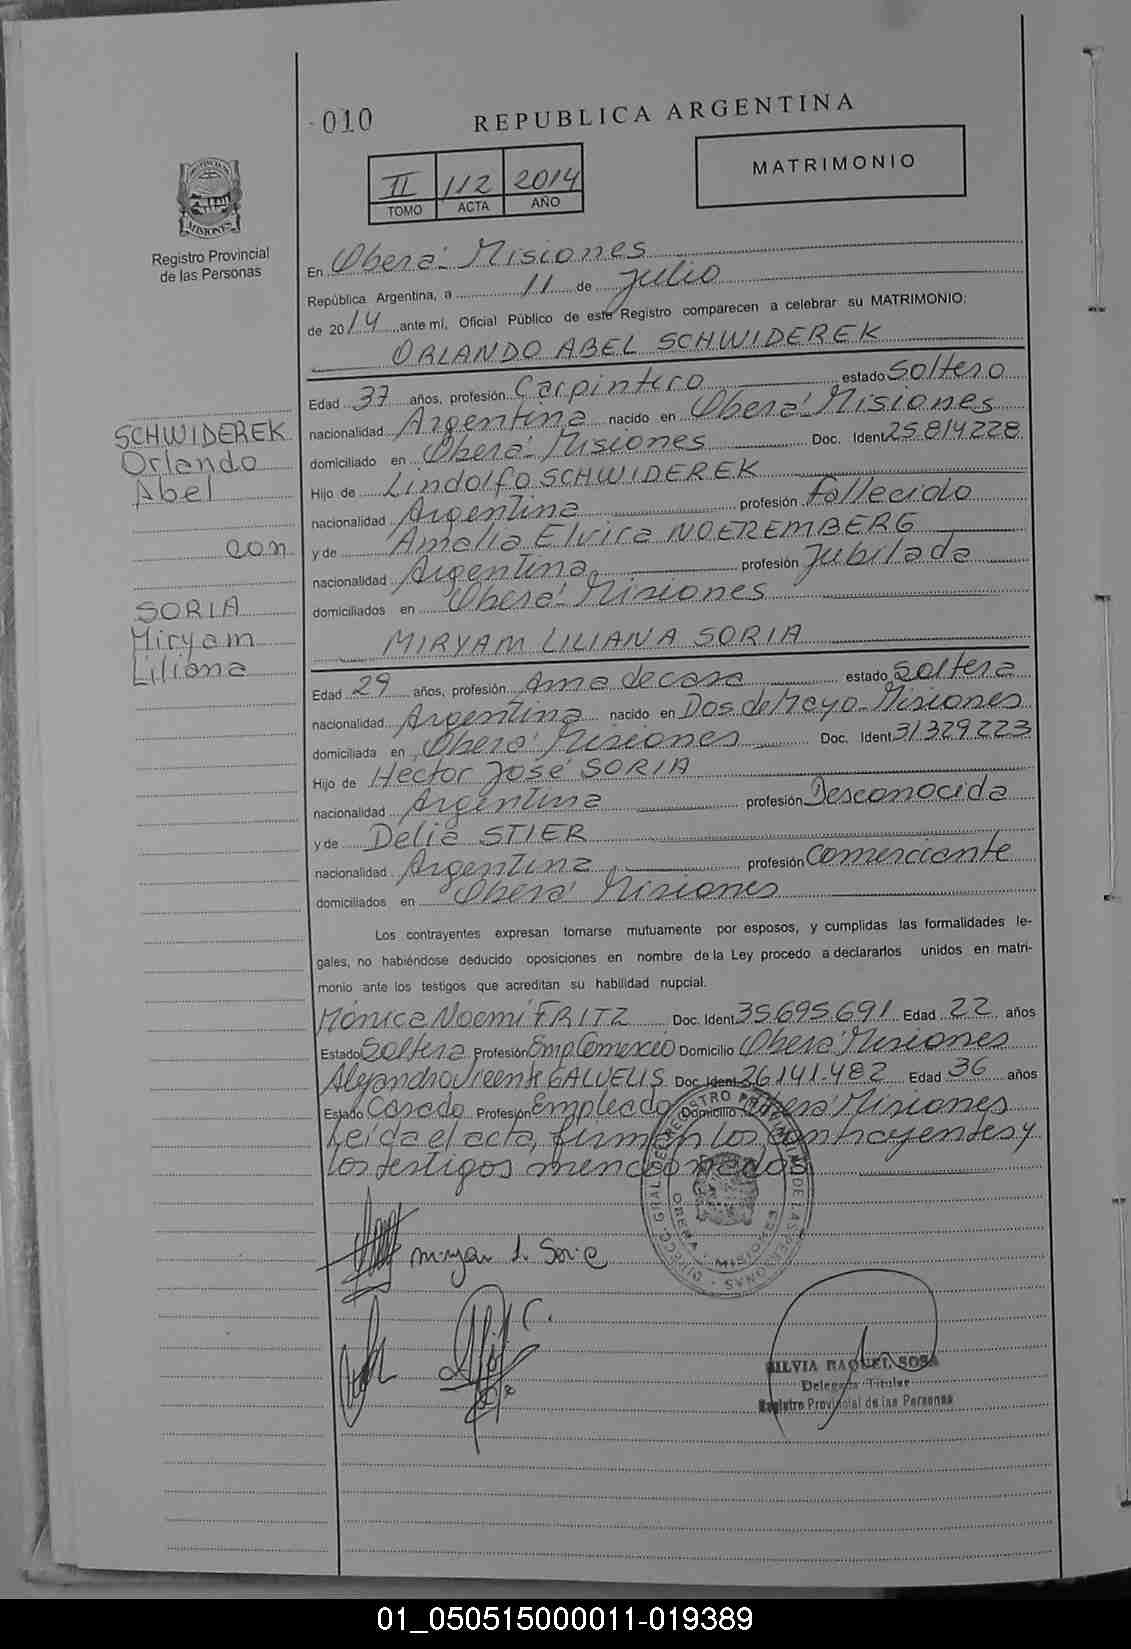 010
REPUBLICA ARGENTINA
MATRIMONIO
II 112 2014
TOMO ACTA AÑO
MISIONES
Registro Provincial
de las Personas
En Oberá - Misiones
República Argentina, a 11 de Julio
de 2014 ante mí, Oficial Público de este Registro comparecen a celebrar su MATRIMONIO:
ORLANDO ABEL SCHWIDEREK
Edad 37 años, profesión Carpintero estado Soltero
nacionalidad Argentina nacido en Oberá - Misiones
domiciliado en Oberá - Misiones Doc. Ident 25814228
Hijo de Lindolfo SCHWIDEREK
nacionalidad Argentina profesión Fallecido
y de Amalia Elvira NOEREMBERG
nacionalidad Argentina profesión Jubilada
domiciliados en Oberá - Misiones
MIRYAM LILIANA SORIA
Edad 29 años, profesión Ama de casa estado Soltera
nacionalidad Argentina nacido en Dos de Mayo - Misiones
domiciliada en Oberá - Misiones Doc. Ident 31329223
Hijo de Hector José SORIA
nacionalidad Argentina profesión Desconocida
y de Delia STIER
nacionalidad Argentina profesión Comerciante
domiciliados en Oberá - Misiones
SCHWIDEREK
Orlando
Abel
con
SORIA
Miryam
Liliana
Los contrayentes expresan tomarse mutuamente por esposos, y cumplidas las formalidades le-
gales, no habiéndose deducido oposiciones en nombre de la Ley procedo a declararlos unidos en matri-
monio ante los testigos que acreditan su habilidad nupcial.
Mónica Noemí FRITZ Doc. Ident 35.695.691 Edad 22 años
Estado Soltera Profesión Emp Comercio Domicilio Oberá - Misiones
Alejandro Vicente GALVELIS Doc. Ident 26.141.482 Edad 36 años
Estado Casado Profesión Empleado Domicilio Oberá - Misiones
Leída el acta, firman los contrayentes y
los testigos mencionados
Miryan L. Soria
OBERA - MISIONES
SILVIA RAQUEL SOSA
Delegada Titular
Registro Provincial de las Personas
01_050515000011-019389